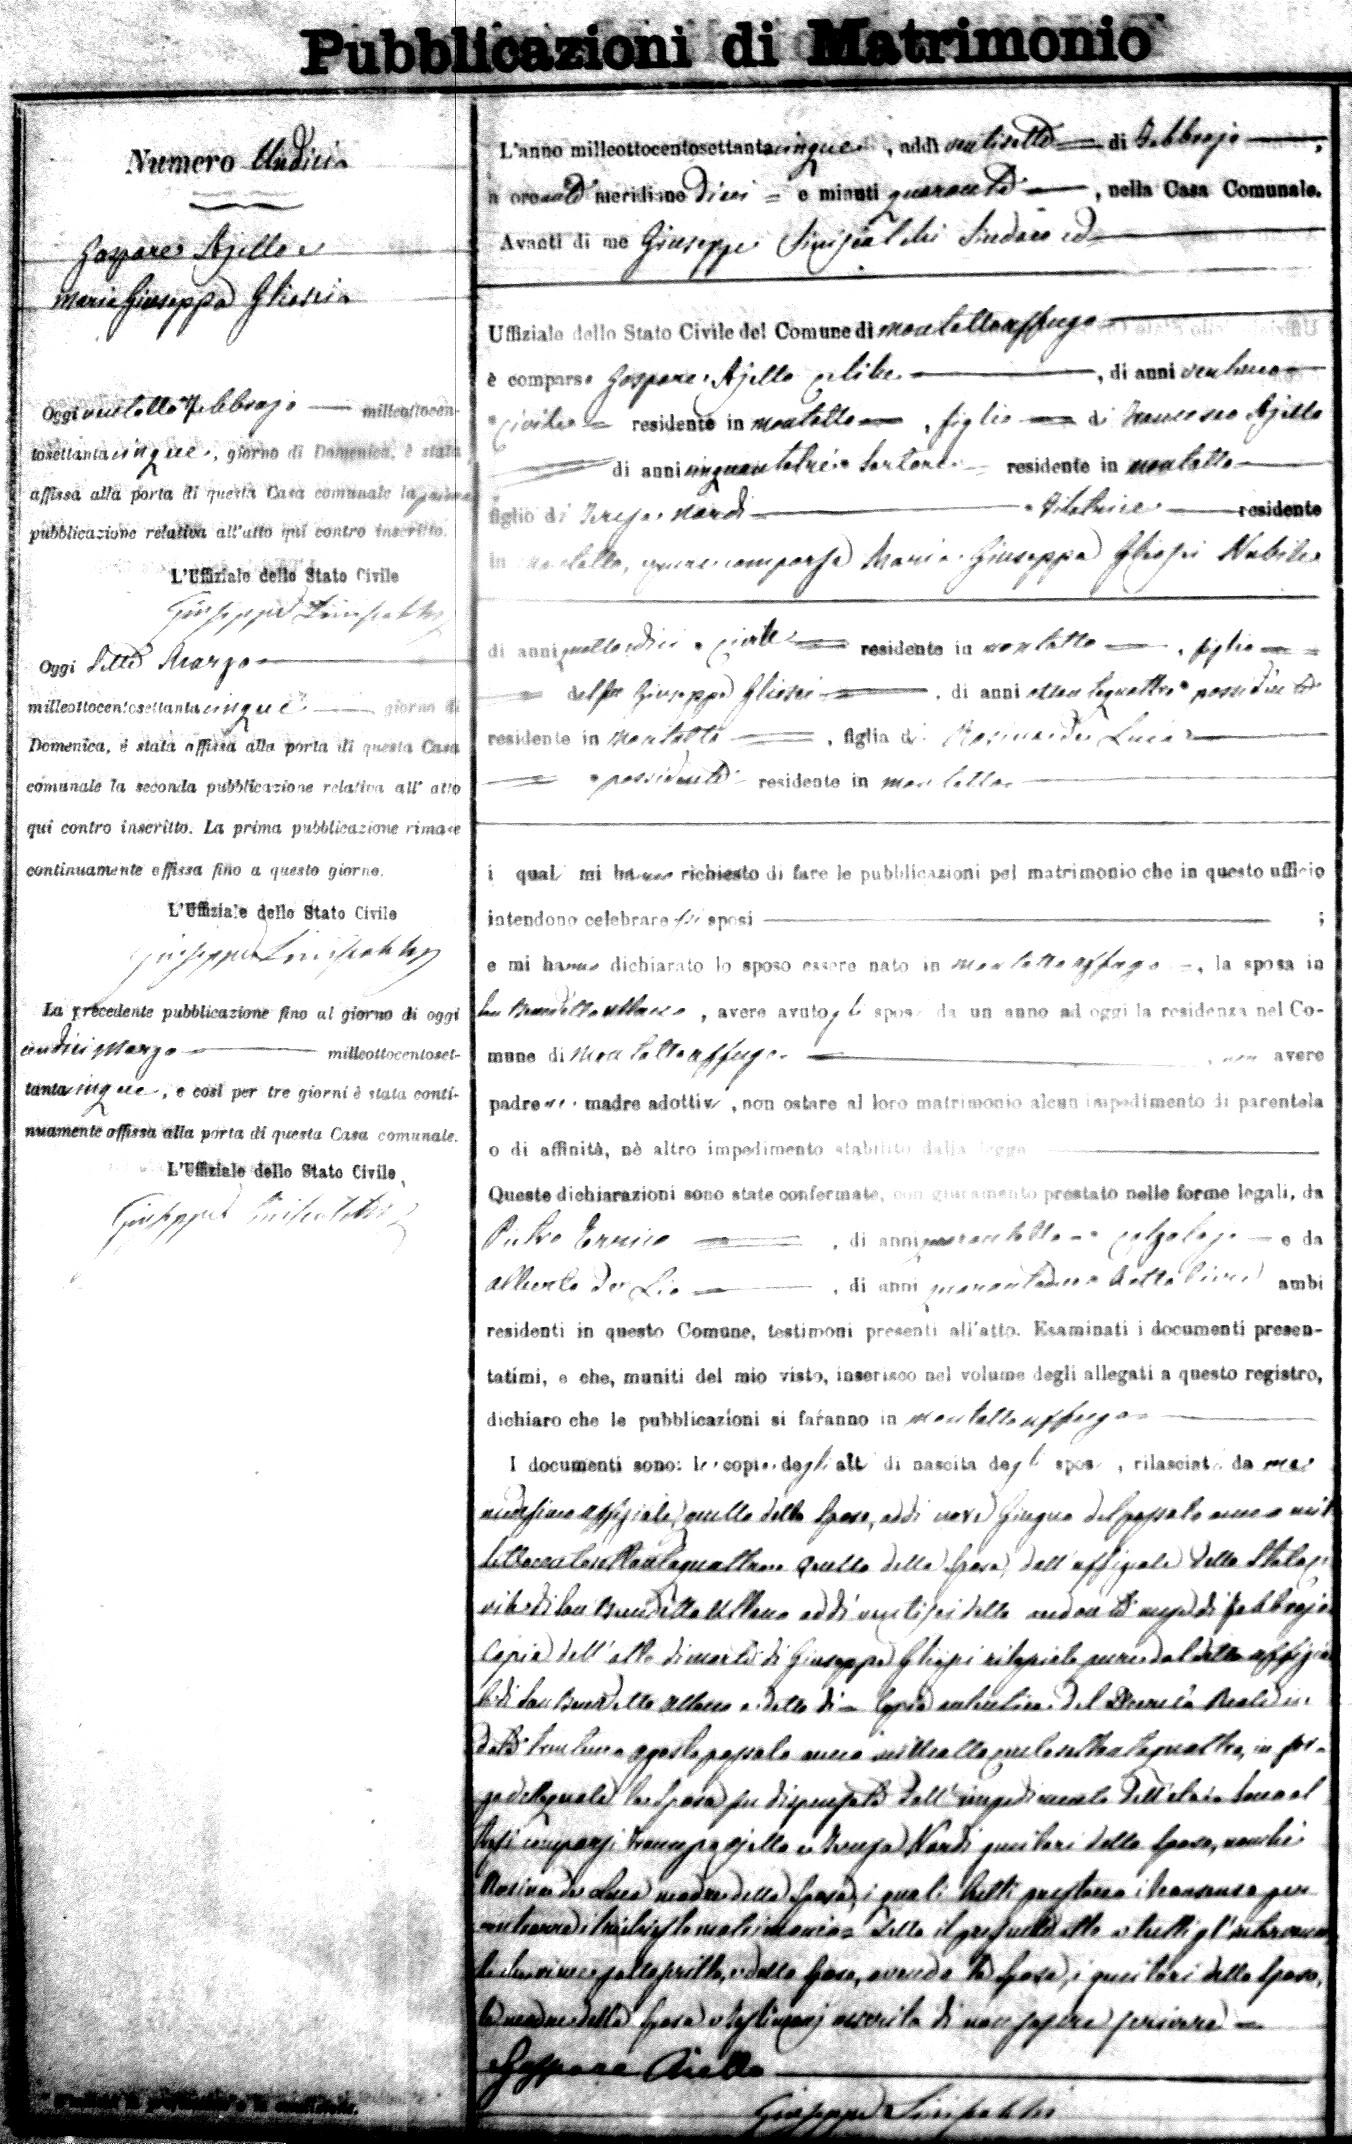 Pubblicazioni di Matrimonio
Numero Undici
Gaspare Ajello e
Maria Giuseppa Gliosci
Oggi ventotto Febbrajo milleottocen-
tosettantacinque, giorno di Domenica, è stata
affissa alla porta di questa Casa comunale la prima
pubblicazione relativa all'atto qui contro inscritto.
L'Uffiziale dello Stato Civile
Giuseppe Siniscalchi
Oggi Sette Marzo
milleottocentosettantacinque giorno di
Domenica, è stata affissa alla porta di questa Casa
comunale la seconda pubblicazione relativa all' atto
qui contro inscritto. La prima pubblicazione rimase
continuamente affissa fino a questo giorno.
L'Uffiziale dello Stato Civile
Giuseppe Siniscalchi
La precedente pubblicazione fino al giorno di oggi
undici Marzo milleottocentoset-
tantacinque, e così per tre giorni è stata conti-
nuamente affissa alla porta di questa Casa comunale.
L'Uffiziale dello Stato Civile
Giuseppe Siniscalchi
L'anno milleottocentosettantacinque, addì ventisette di Febbrajo ;
a ore anti meridiane dieci e minuti quaranta, nella Casa Comunale.
Avanti di me Giuseppe Siniscalchi Sindaco ed
Uffiziale dello Stato Civile del Comune di Montaltouffugo
è comparso Gaspare Ajello celibe, di anni ventuno
civile residente in Montalto, figlio di Francesco Ajello
di anni cinquantatrè Sartore residente in Montalto
figlio di Teresa Nardi Filatrice residente
in Montalto, pure comparsa Maria Giuseppa Gliosci Nubile
di anni quattordici civile residente in Montalto, figlia
del fu Giuseppe Gliosci, di anni ottantaquattro possidente
residente in Montalto, figlia di Rosina de Luca
possidente residente in Montalto
i quali mi hanno richiesto di fare le pubblicazioni pel matrimonio che in questo ufficio
intendono celebrare essi sposi ;
e mi hanno dichiarato lo sposo essere nato in Montaltouffugo, la sposa in
San Benedetto Ullano, avere avuto gli sposi da un anno ad oggi la residenza nel Co-
mune di Montaltouffugo, non avere
padre nè madre adottivi, non ostare al loro matrimonio alcun impedimento di parentela
o di affinità, nè altro impedimento stabilito dalla legge
Queste dichiarazioni sono state confermate, con giuramento prestato nelle forme legali, da
Pietro, di anni quarantotto calzolajo e da
Alberto de Lio, di anni quarantadue bottaio ambi
residenti in questo Comune, testimoni presenti all'atto. Esaminati i documenti presen-
tatimi, e che, muniti del mio visto, inserisco nel volume degli allegati a questo registro,
dichiaro che le pubblicazioni si faranno in Montaltouffugo
I documenti sono: le copie degli atti di nascita degli sposi, rilasciate da me
medesimo uffiziale, quella dello Sposo, addì nove Giugno del passato anno mil-
leottocentosettantaquattro e quella della Sposa, dall'uffiziale dello Stato Ci-
vile di San Benedetto Ullano addì ventisei dello andante mese di Febbrajo
Copia dell'atto di morte di Giuseppe Gliosci rilasciata pure dal detto uffizia-
le di San Benedetto Ullano e detto dì Copia autentica del Decreto Reale in
data trentuno agosto passato anno milleottocentosettantaquattro, in for-
za del quale la Sposa fu dispensata dall'impedimento dell'età. Sono al
comparsi Francesco Ajello e Teresa Nardi genitori dello Sposo, nonchè
Rosina de Luca madre della Sposa, i quali tutti prestano il consenso per
matrimonio Letto il presente atto a tutti gl'intervenuti
sottoscritto, e dallo Sposo, avendo la Sposa, i genitori dello Sposo,
la madre della Sposa e testimoni asserito di non sapere scrivere
Gaspare Aiello
Giuseppe Siniscalchi